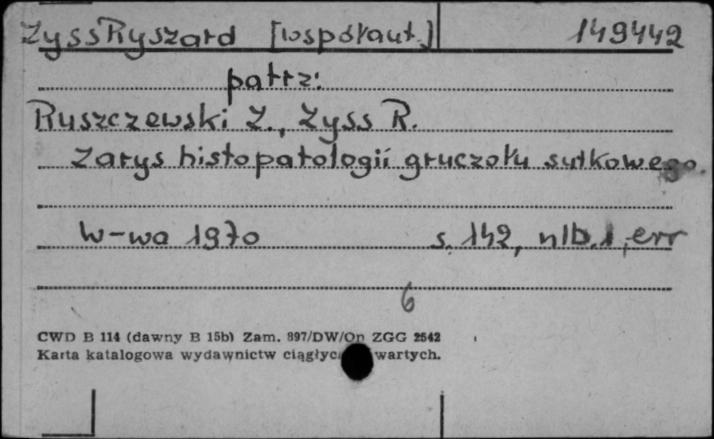 Zyss Ryszard [współaut.] 149442
patrz:
Ruszczewski Z., Zyss R.
Zarys histopatologii gruczołu sutkowego.
W-wa 1970 s. 142, nlb. 1, err
6
CWD B 114 (dawny B 15b) Zam. 897/DW/Op ZGG 2542
Karta katalogowa wydawnictw wartych.